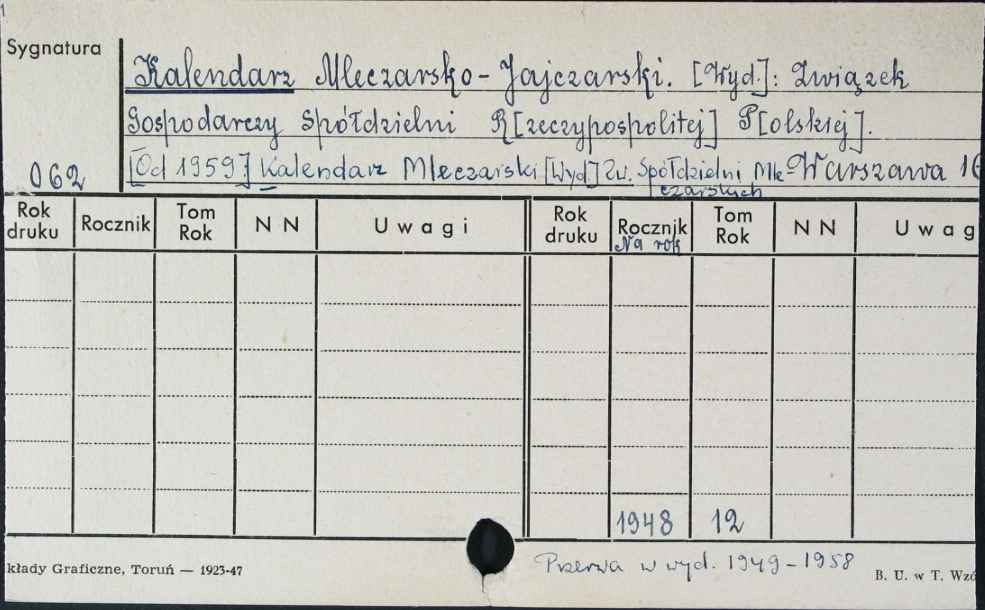 1
Sygnatura
Kalendarz Mleczarsko-Jajczarski. [Wyd.]: Związek
Gospodarczy Spółdzielni R[zeczypospolitej] P[olskiej].
062 [Od 1959] Kalendarz Mleczarski [Wyd.] Zw. Spółdzielni Mle- Warszawa 16
czarskich
Rok druku Rocznik Tom Rok N N Uwagi Rok druku Rocznik Tom Rok N N Uwag
Na rok
1948 12
Przerwa w wyd. 1949-1958
kłady Graficzne, Toruń — 1923-47 B. U. w T. Wzó